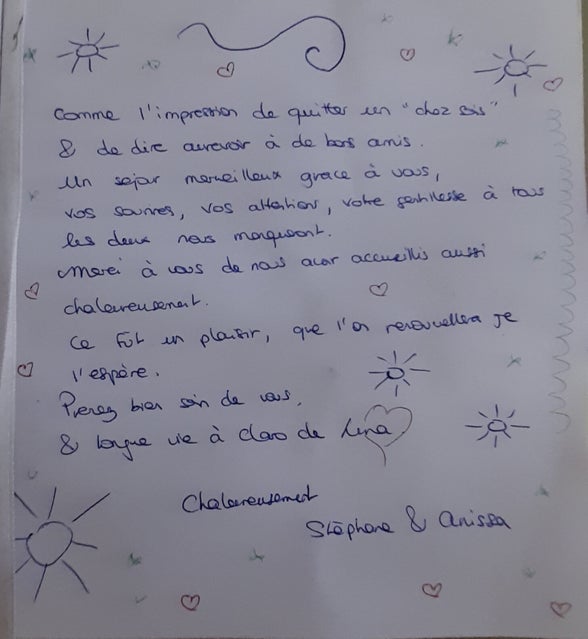 Comme l'impression de quitter un "chez sois"
& de dire aurevoir à de bons amis.
Un sejour merveilleux grace à vous,
vos sourires, vos attentions, votre gentillesse à tous
les deux nous manqueront.
Merci à vous de nous avoir accueillis aussi
chaleureusement.
Ce fût un plaisir, que l'on renouvellera je
l'espère.
Prenez bien soin de vous,
& longue vie à claro de Luna
Chaleureusement
Stéphane & Anissa